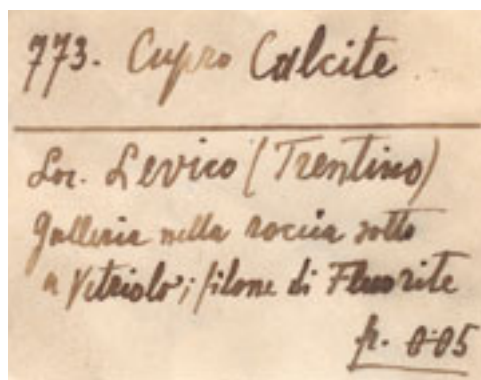 773. Cupro Calcite
Loc. Levico (Trentino)
Galleria nella roccia sotto
a Vetriolo; filone di Fluorite
fr. 0.05